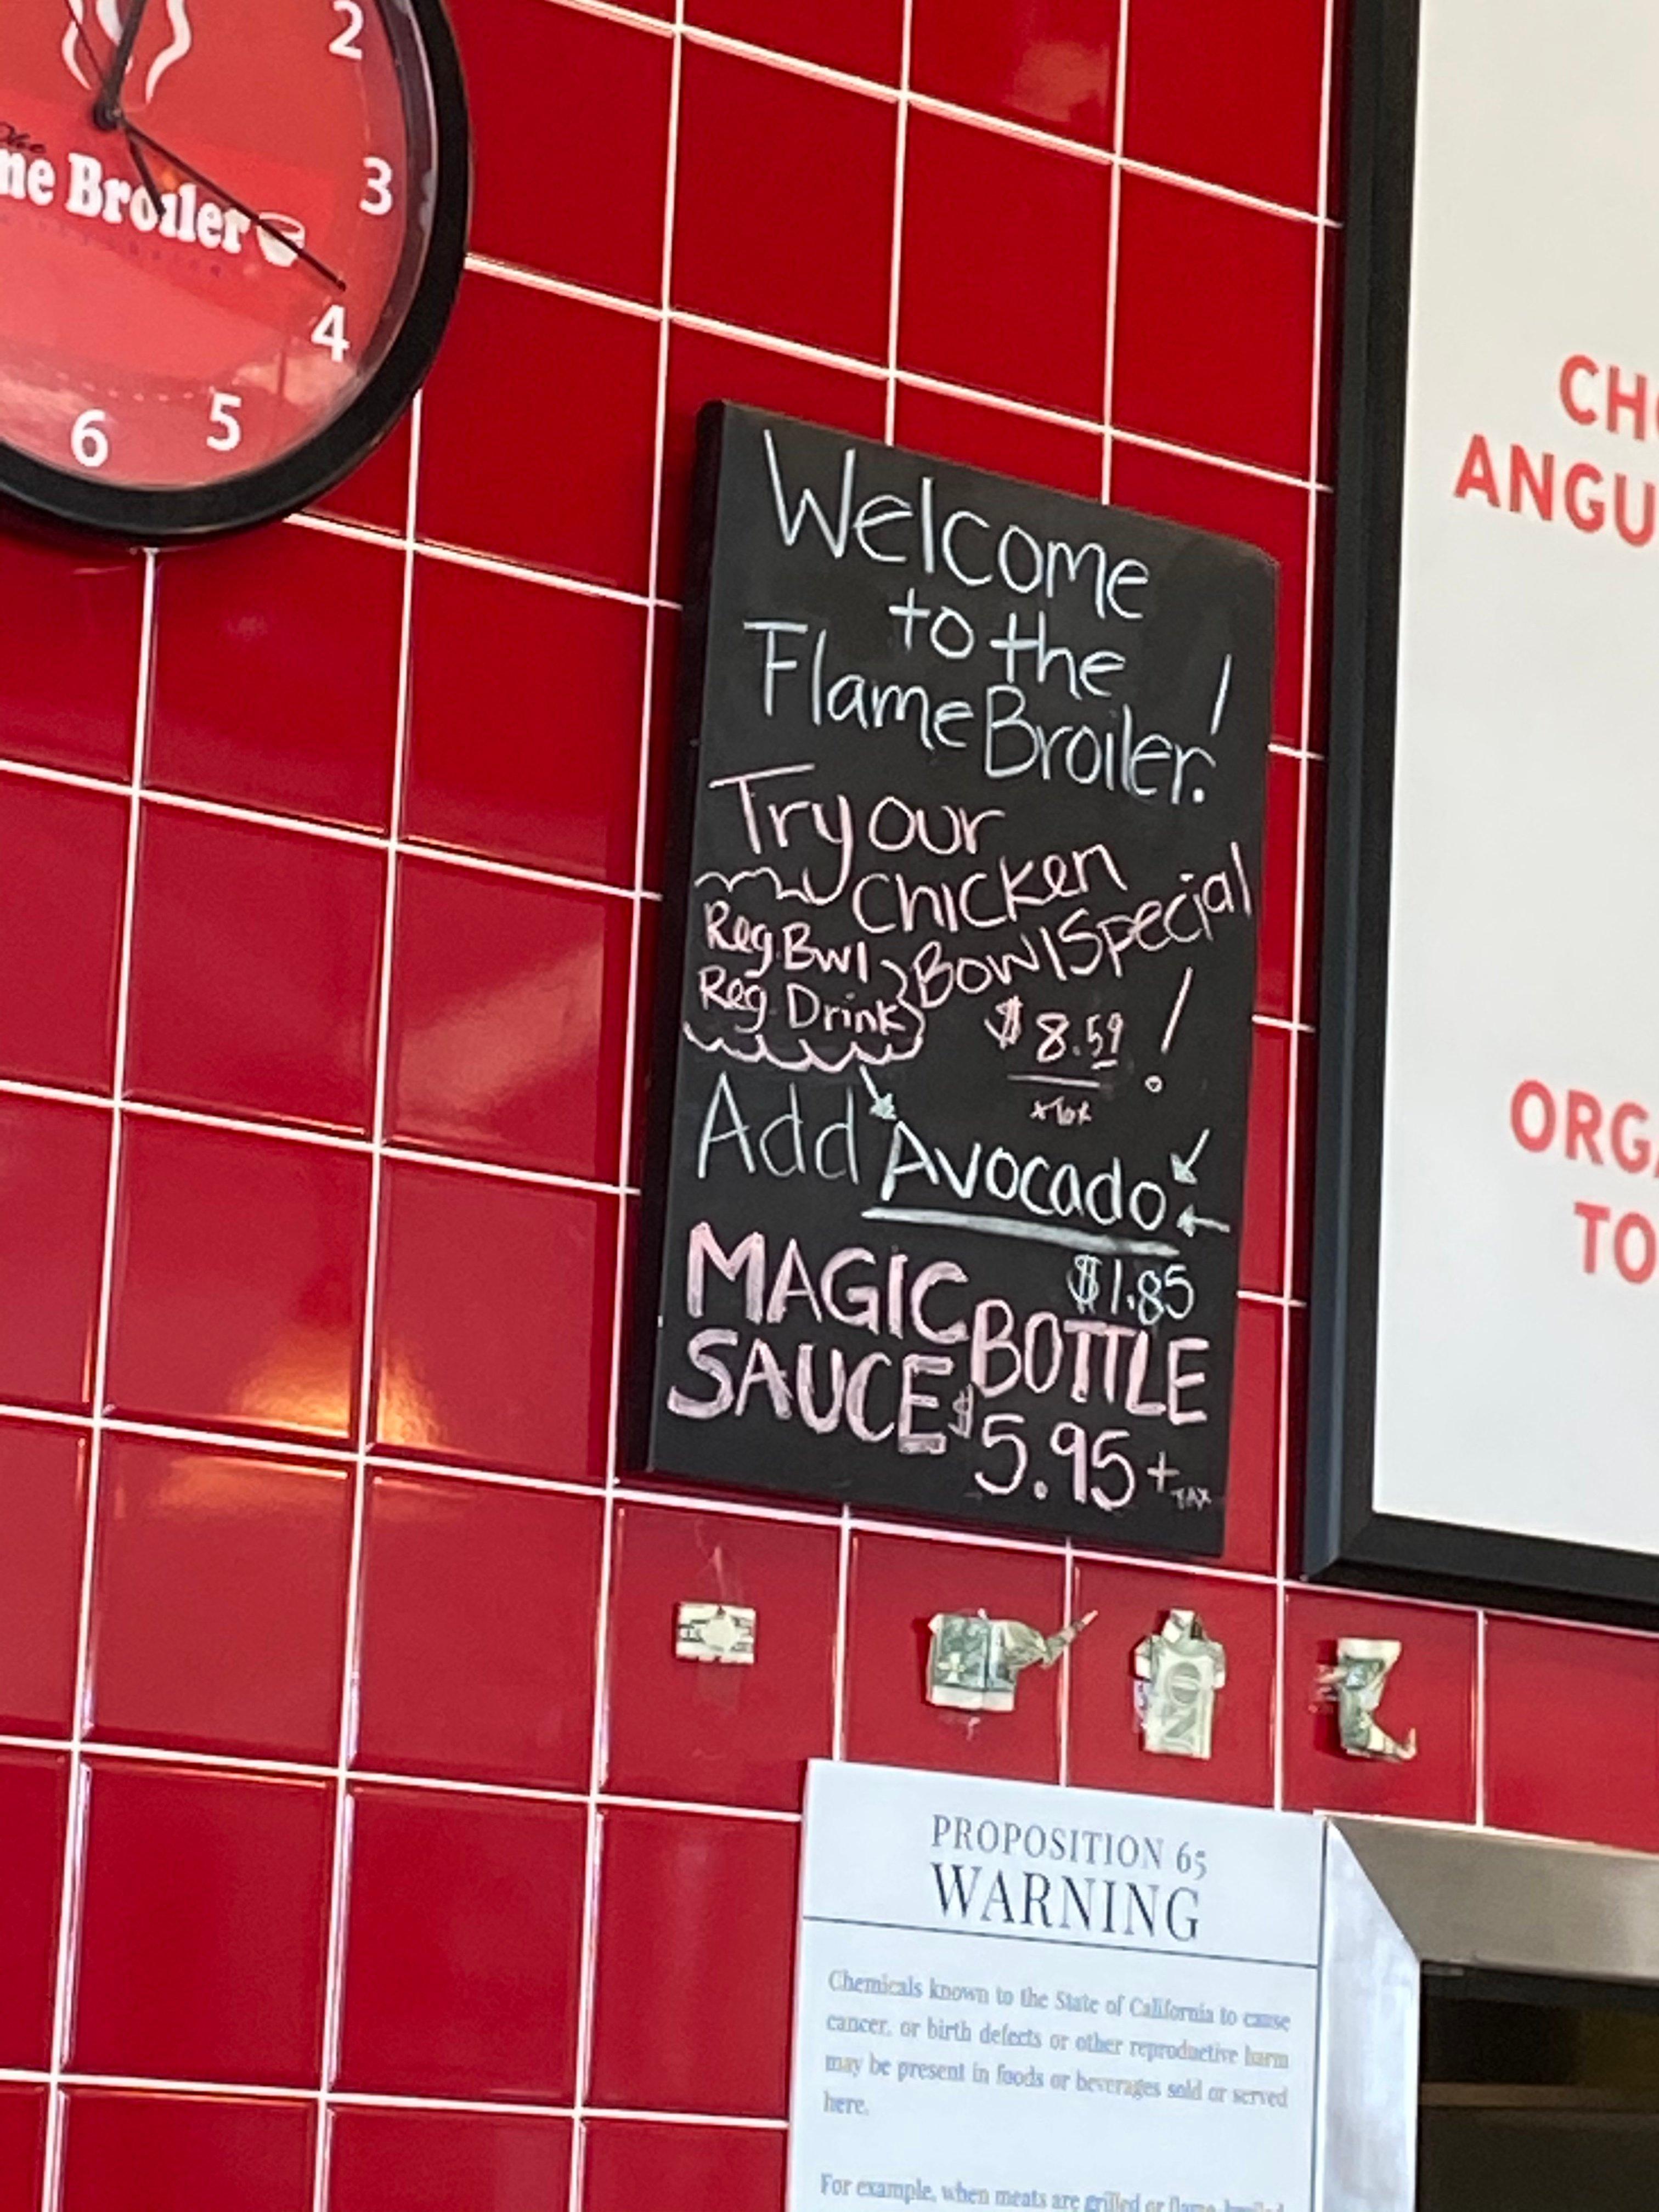 2
3
4
5
6
The
me Broiler
Welcome
to the
Flame Broiler!
Try our
Chicken
Bowl Special
Reg. Bwl
Reg. Drink
$8.59!
+ Tax
Add Avocado
$1.85
MAGIC BOTTLE
SAUCE $5.95 + TAX
CHO
ANGU
ORGA
TO
ON
PROPOSITION 65
WARNING
Chemicals known to the State of California to cause
cancer, or birth defects or other reproductive harm
may be present in foods or beverages sold or served
here.
For example, when meats are grilled or flame-broiled